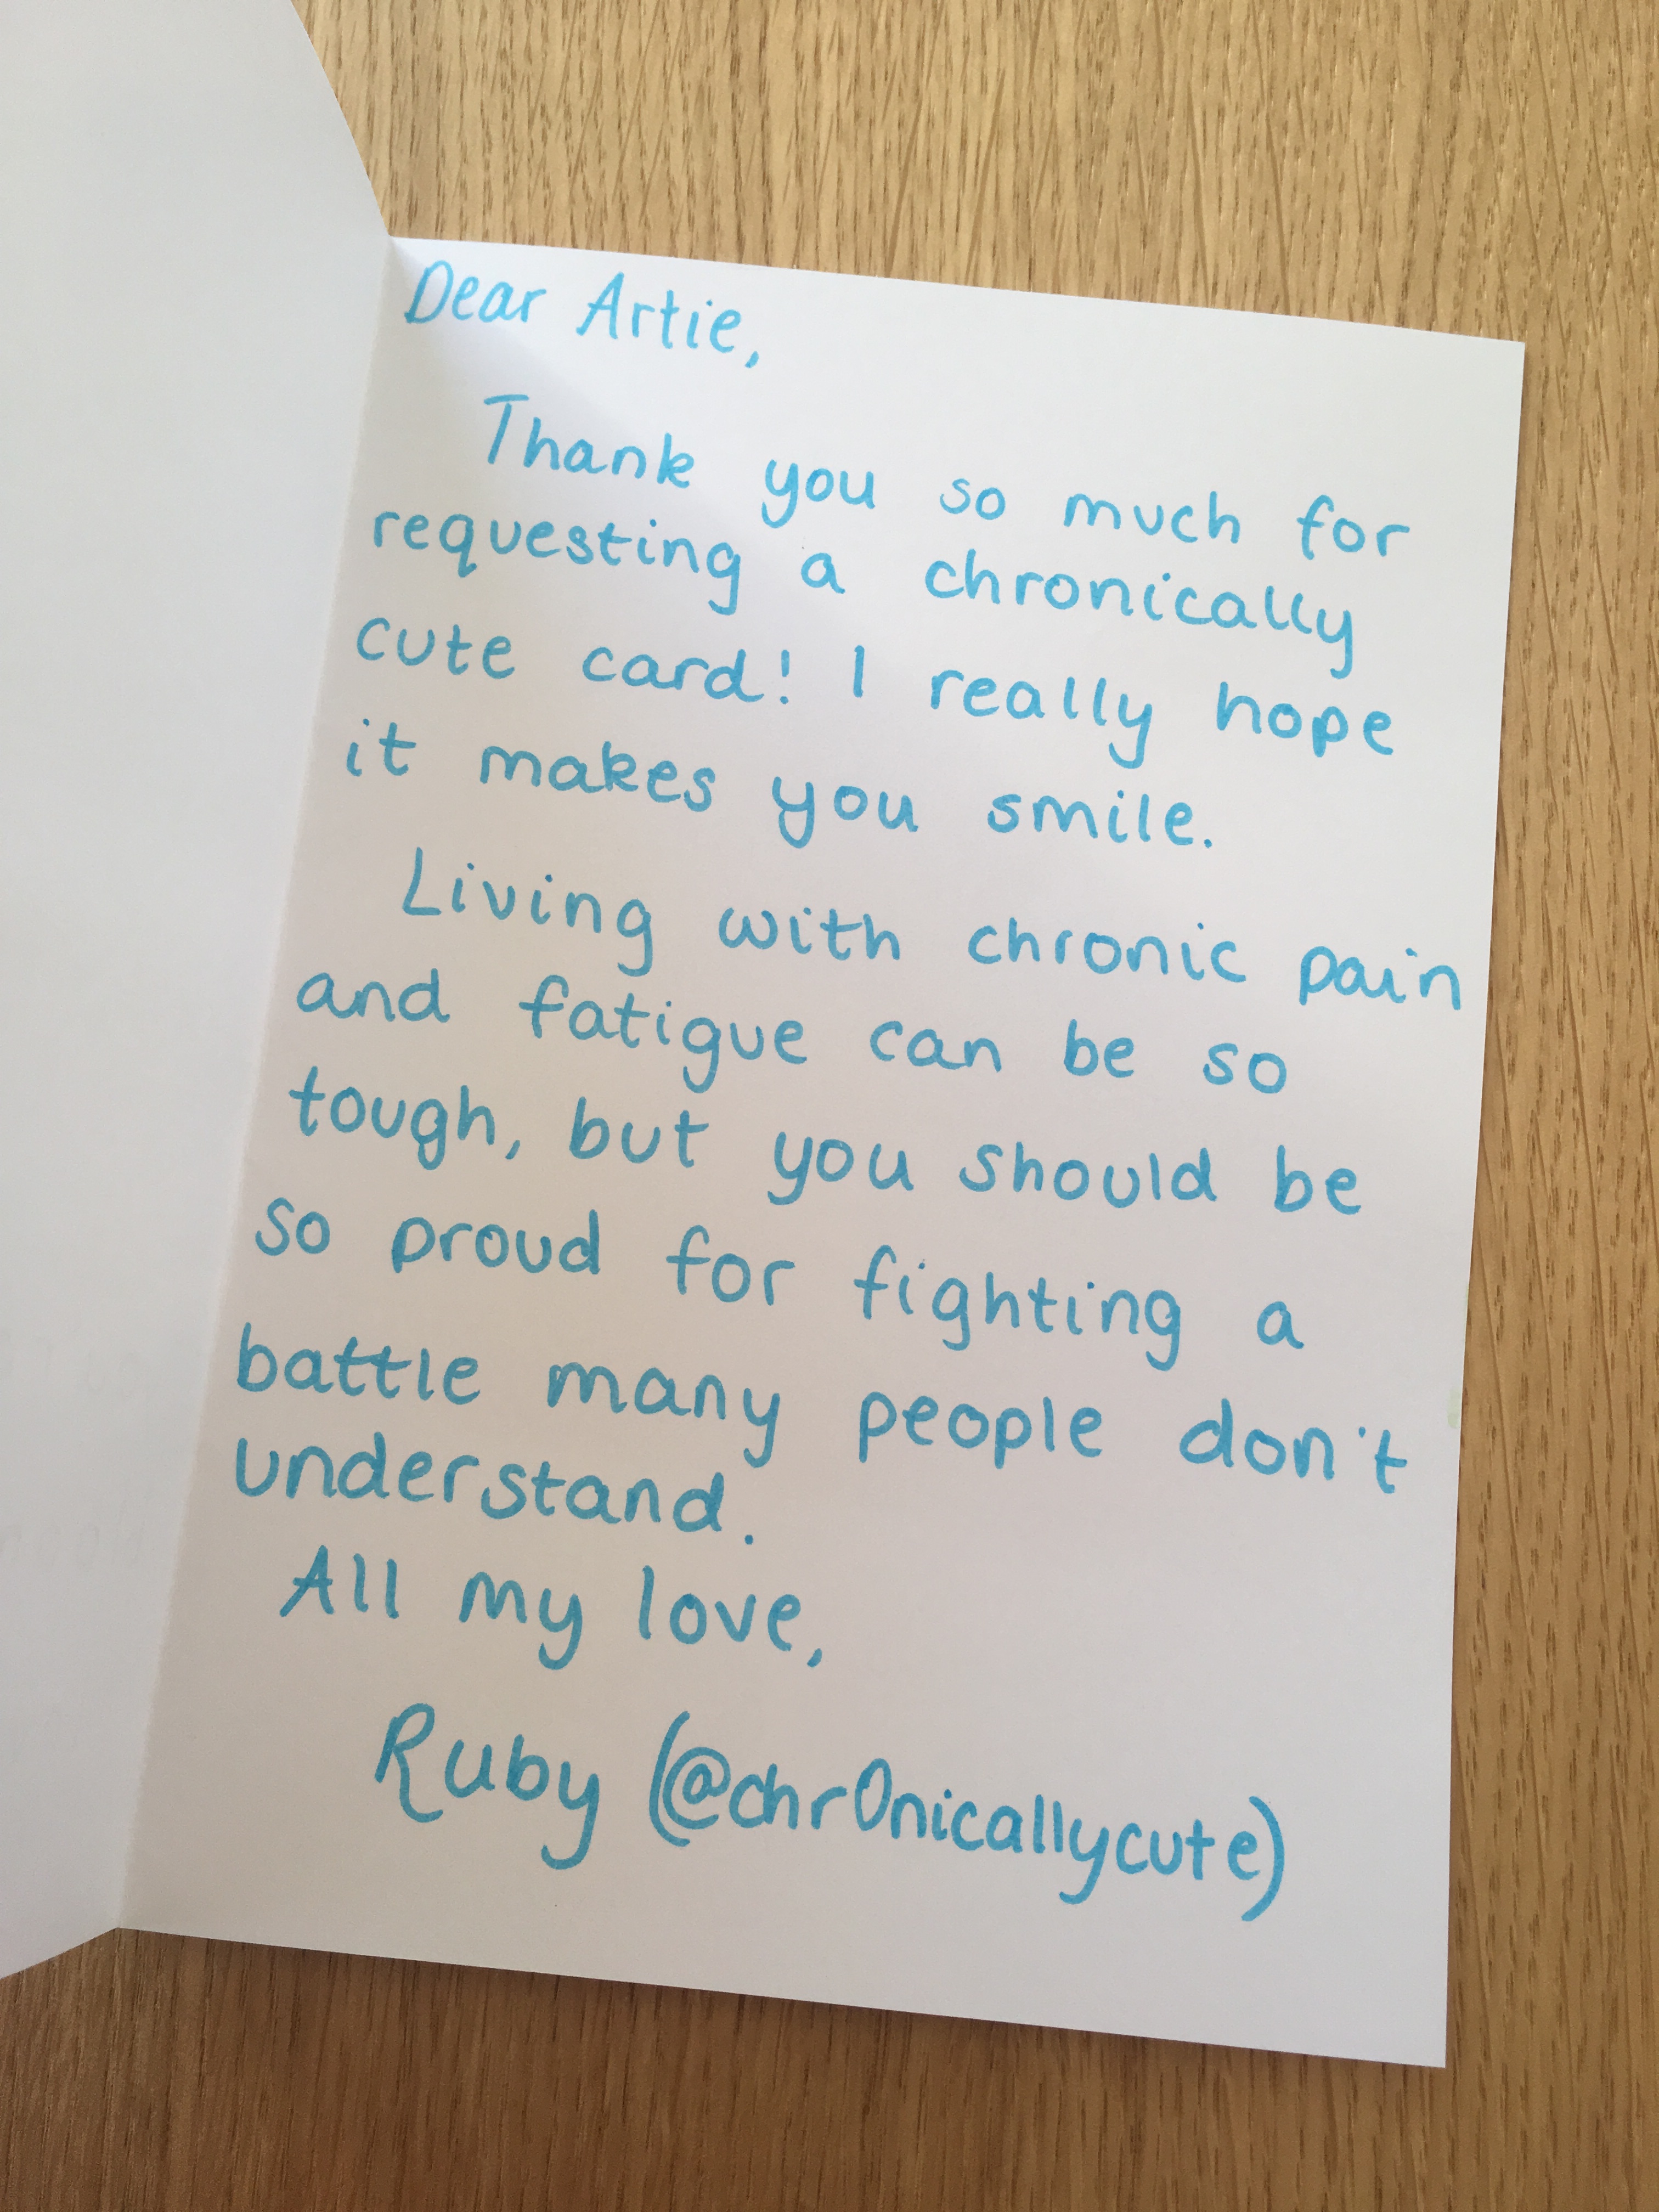 Dear Artie,
Thank you so much for
requesting a chronically
cute card! I really hope
it makes you smile.
Living with chronic pain
and fatigue can be so
tough, but you should be
so proud for fighting a
battle many people don't
understand.
All my love,
Ruby (@chr0nicallycute)